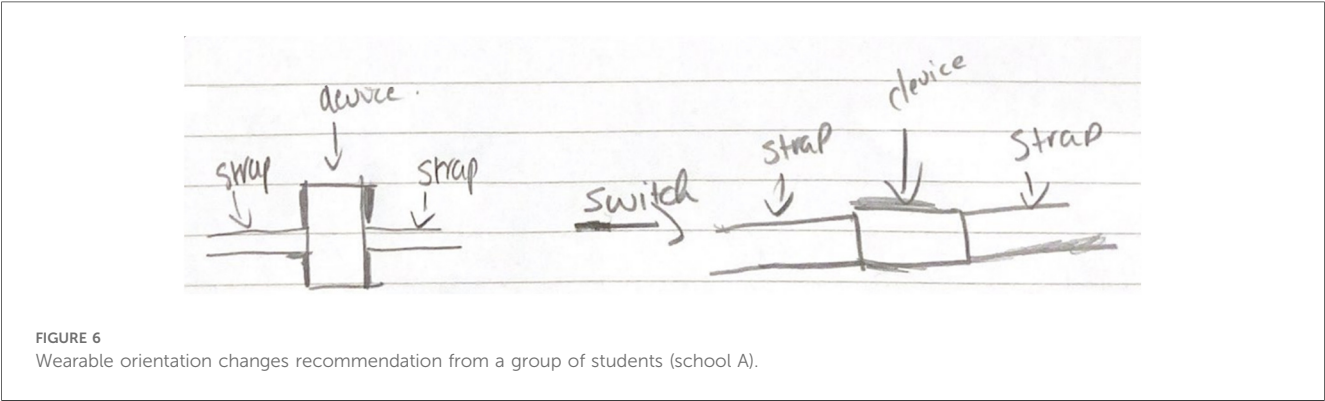 device.
device
strap
strap
switch
strap
strap
FIGURE 6
Wearable orientation changes recommendation from a group of students (school A).